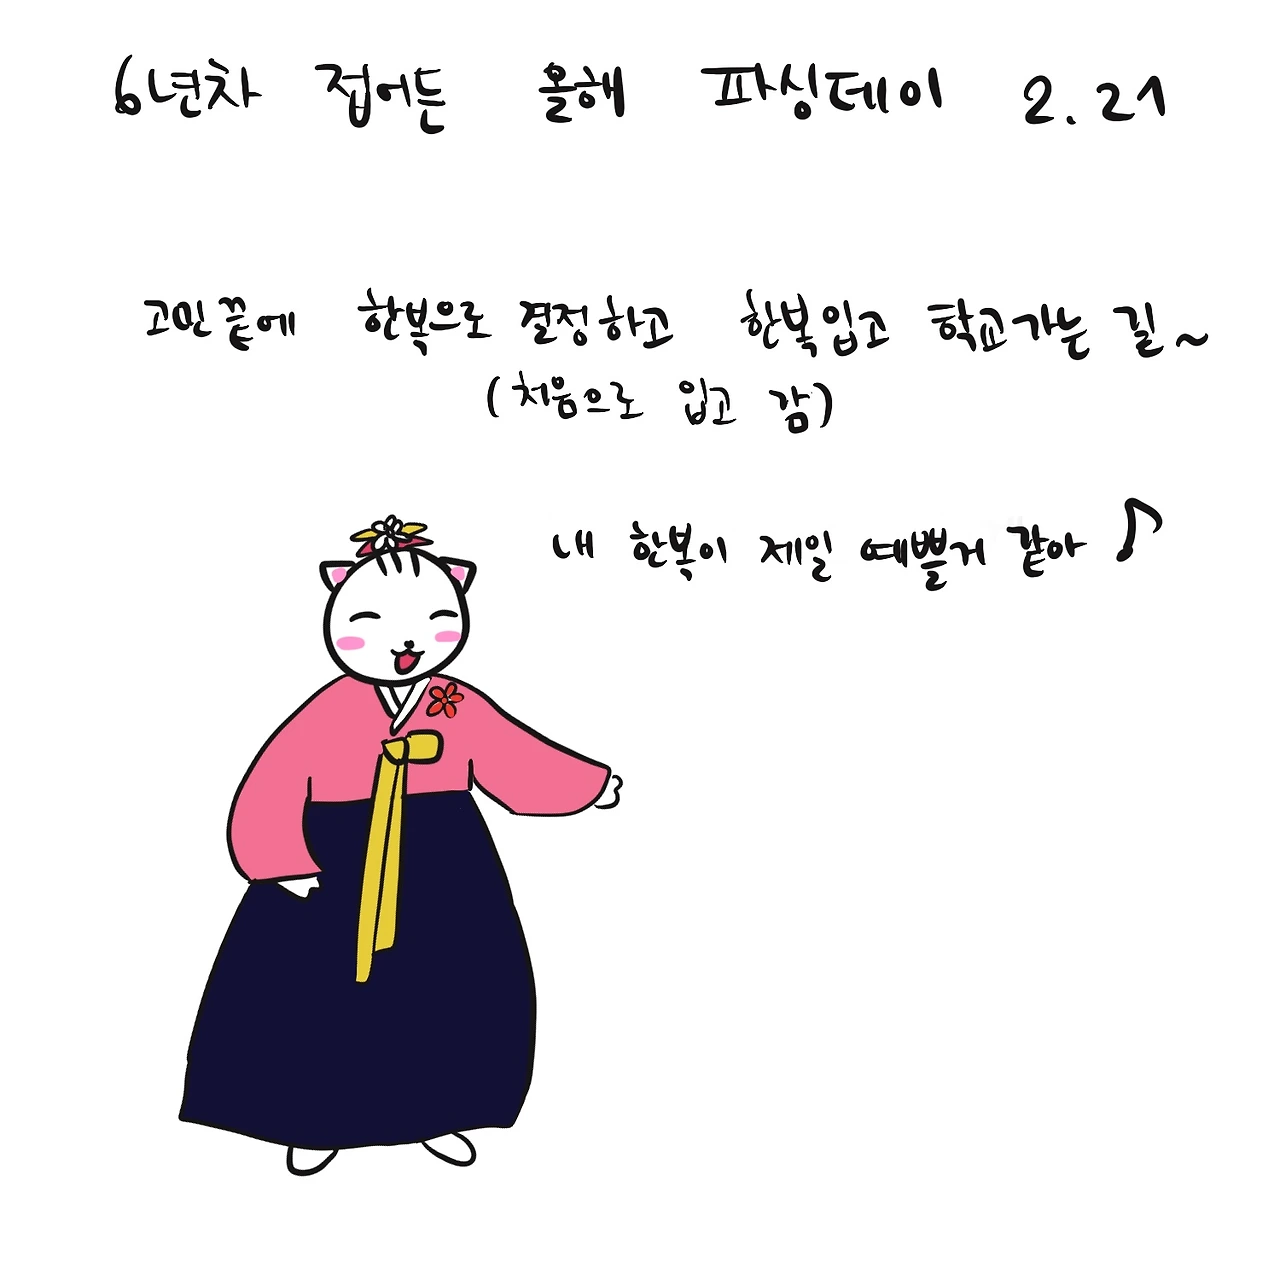 6년차 접어든 올해 파싱데이 2.21
고민끝에 한복으로 결정하고 한복입고 학교가는 길~
(처음으로 입고 감)
내 한복이 제일 예쁠거 같아 ♪